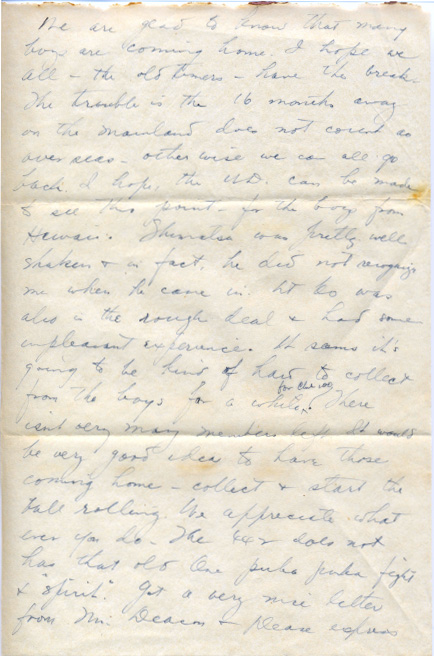 We are glad to know that many
boys are coming home. I hope we
all - the old timers - have the break.
The trouble is the 16 months away
on the mainland does not count as
over seas - other wise we can all go
back. I hope, the W.D. can be made
to see this point - for the boys from
Hawaii. Shimatsu was pretty well
shaken & in fact, he did not recognize
me when he came in. Lt Co was
also in the rough deal & had some
unpleasant experience. It seems it's
going to be kind of hard to collect
for the
from the boys for a while. There
isn't very many members left. It would
be very good idea to have those
coming home - collect & start the
ball rolling. We appreciate what
ever you do. The 442 does not
has that old One puka puka fight
& "spirit." Got a very nice letter
from Mr. Deacon & please express